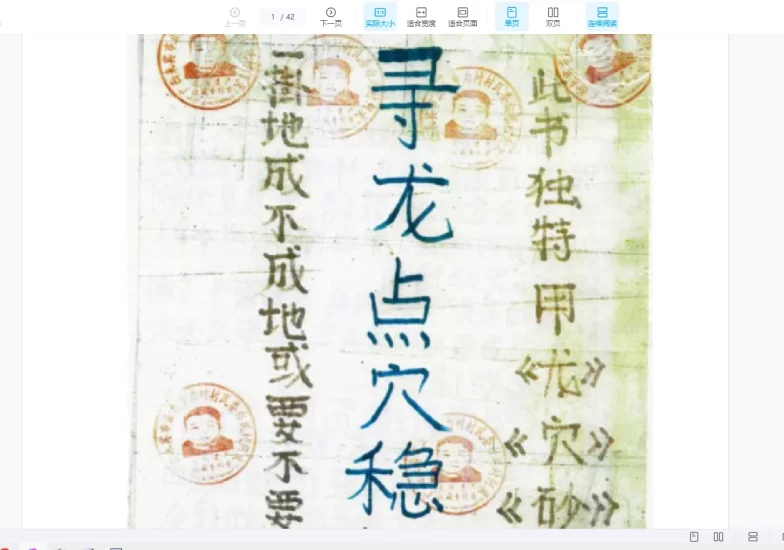 上一页
1 / 42
下一页
实际大小
适合宽度
适合页面
单页
双页
连续阅读
此书独特用《龙》《穴》《砂》
寻龙点穴稳
卦地成不成地或要不要